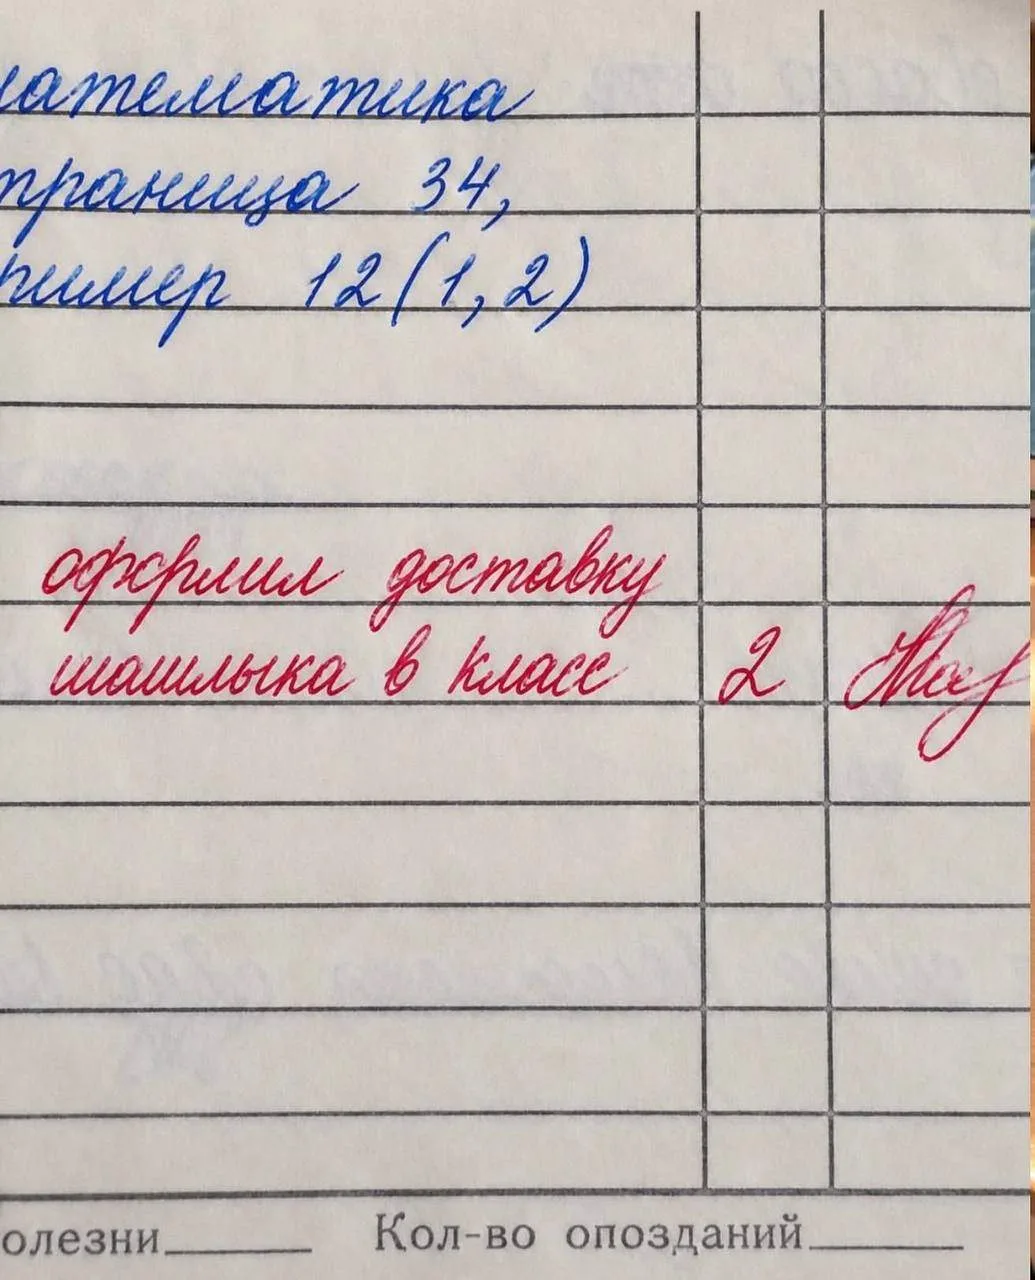 математика
страница 34,
пример 12 (1, 2)
оформил доставку
шашлыка в класс 2
олезни Кол-во опозданий